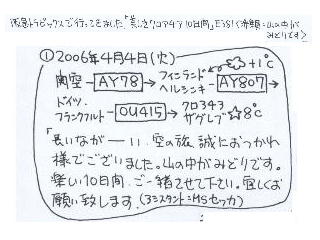 阪急トラピックスで行ってきました「美しきクロアチア10日間」E381く(添乗=山の中がみどりです>
① 2006年4月4日(火)
+1℃
関空→AY78→フィンランド ヘルシンキ→AY807→
ドイツ、フランクフルト→OU415→クロ343 ザグレブ☆8℃
「長いなが━━い、空の旅、誠におつかれ
様でございました。山の中がみどりです。
楽しい10日間、ご一緒させて下さい。宜しくお
願い致します。(アシスタント=MSセッカ)